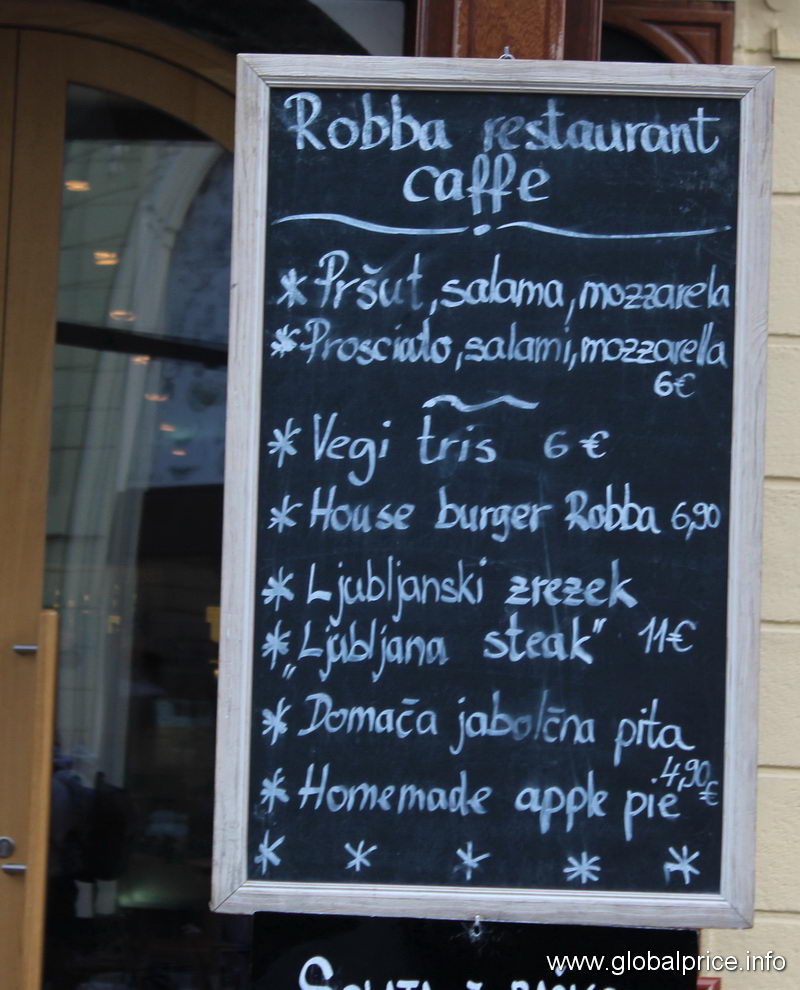 Robba restaurant
caffe
* Pršut, salama, mozzarela
* Prosciato, salami, mozzarella
6€
* Vegi tris 6 €
* House burger Robba 6,90
* Ljubljanski zrezek
* „Ljubljana steak" 11€
* Domača jabolčna pita
* Homemade apple pie 4,90 €
* * * * *
www.globalprice.info